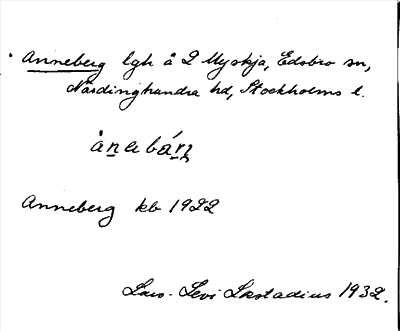 Anneberg lgh å 2 Myskja, Edsbro sn,
Närdinghundra hd, Stockholms l.
ån̲ebár̲n̲
Anneberg kb 1922
Lars-Levi Læstadius 1932.